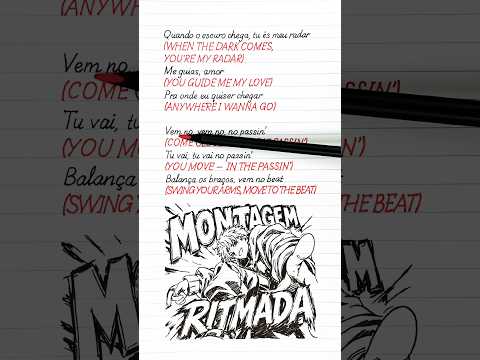 Quando o escuro chega, tu és meu radar
(WHEN THE DARK COMES,
YOU'RE MY RADAR)
Me guias, amor
(YOU GUIDE ME MY LOVE)
Pra onde eu quiser chegar
(ANYWHERE I WANNA GO)
Vem no, vem no, no passin'
(COME PASSIN')
Tu vai, tu vai no passin'
(YOU MOVE – IN THE PASSIN')
Balança os braços, vem no beat
(SWING YOUR ARMS, MOVE TO THE BEAT)
MONTAGEM
RITMADA